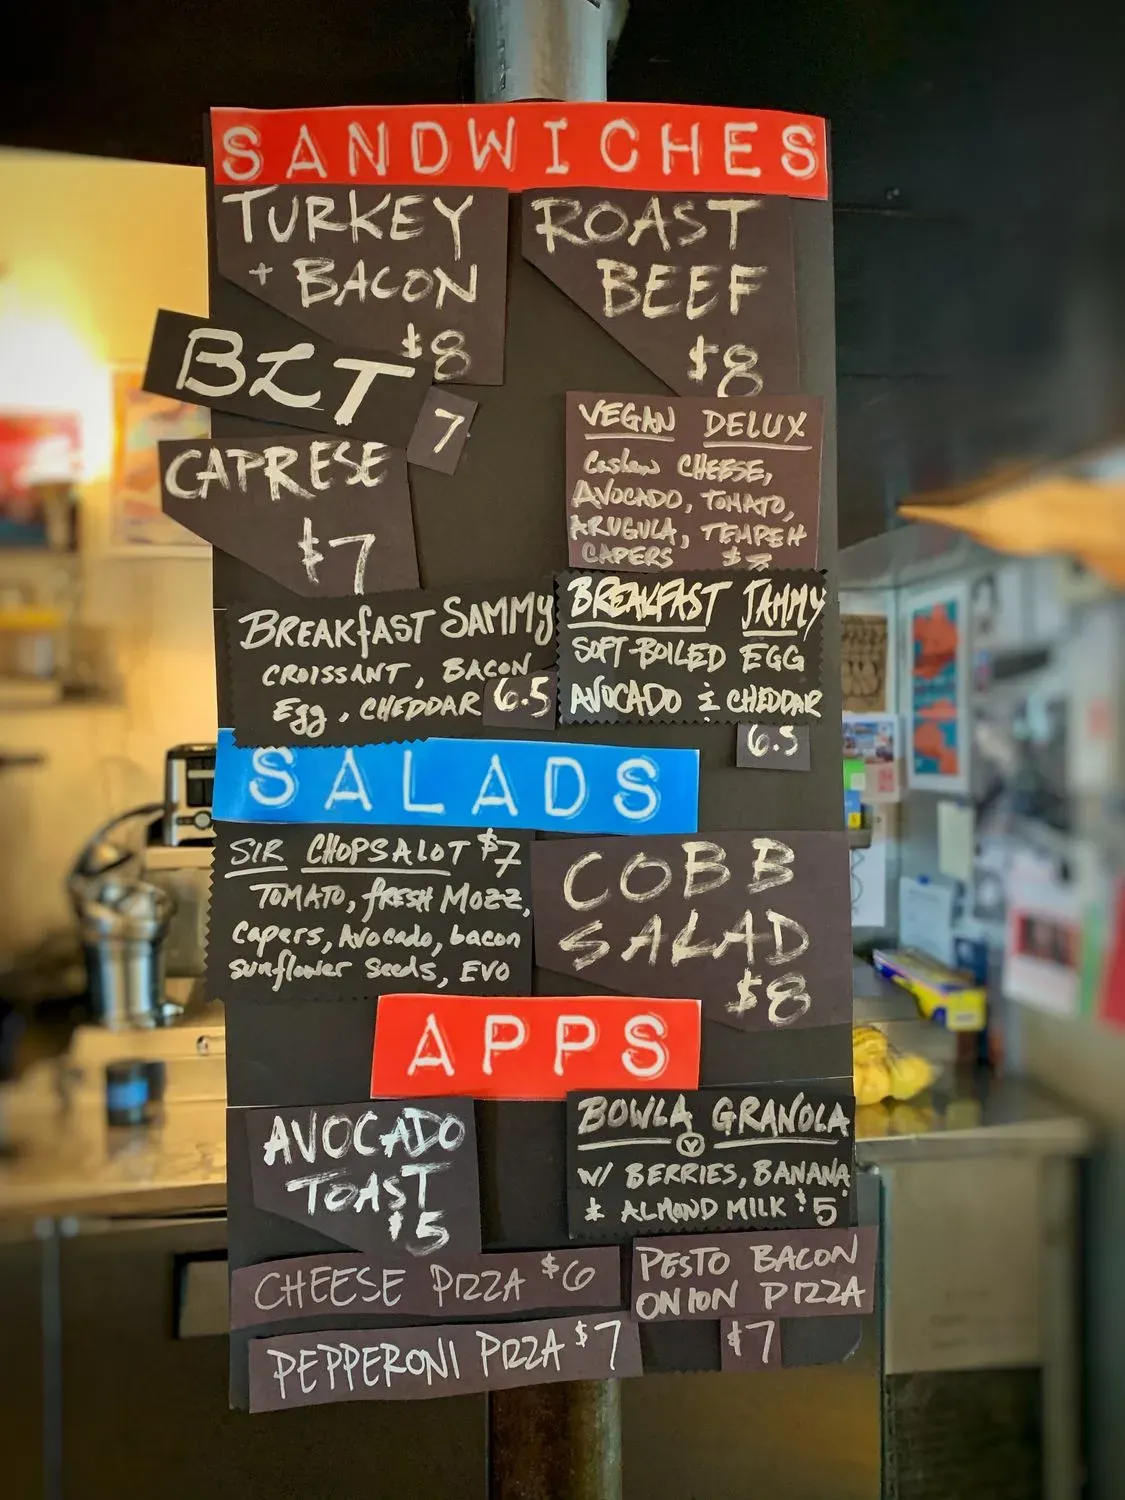 SANDWICHES
TURKEY
+ BACON
$8
ROAST
BEEF
$8
BLT
7
CAPRESE
$7
VEGAN DELUX
Cashew CHEESE,
AVOCADO, TOMATO,
ARUGULA, TEMPEH
CAPERS $7
BREAKfAST SAMMY
CROISSANT, BACON
Egg, CHEDDAR 6.5
BREAKFAST JAMMY
SOFT-BOILED EGG
AVOCADO & CHEDDAR
6.5
SALADS
SIR CHOPSALOT $7
TOMATO, fRESH MOZZ,
Capers, Avocado, bacon
sunflower seeds, EVO
COBB
SALAD
$8
APPS
AVOCADO
TOAST
$5
BOWLA GRANOLA
V
W/ BERRIES, BANANA
& ALMOND MILK $5
CHEESE PIZZA $6
PESTO BACON
ONION PIZZA
$7
PEPPERONI PIZZA $7